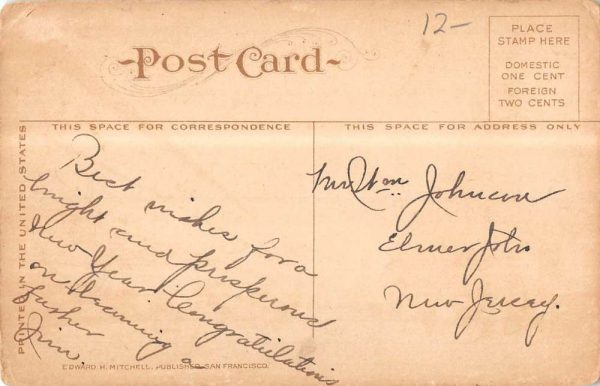 12-
PLACE
STAMP HERE
DOMESTIC
ONE CENT
FOREIGN
TWO CENTS
Post Card
THIS SPACE FOR CORRESPONDENCE
THIS SPACE FOR ADDRESS ONLY
PRINTED IN THE UNITED STATES
Best wishes for a
bright and prosperous
New Year. Congratulations
on becoming a
Jim.
Johnson
Elmer
New Jersey.
EDWARD H. MITCHELL, PUBLISHER, SAN FRANCISCO.